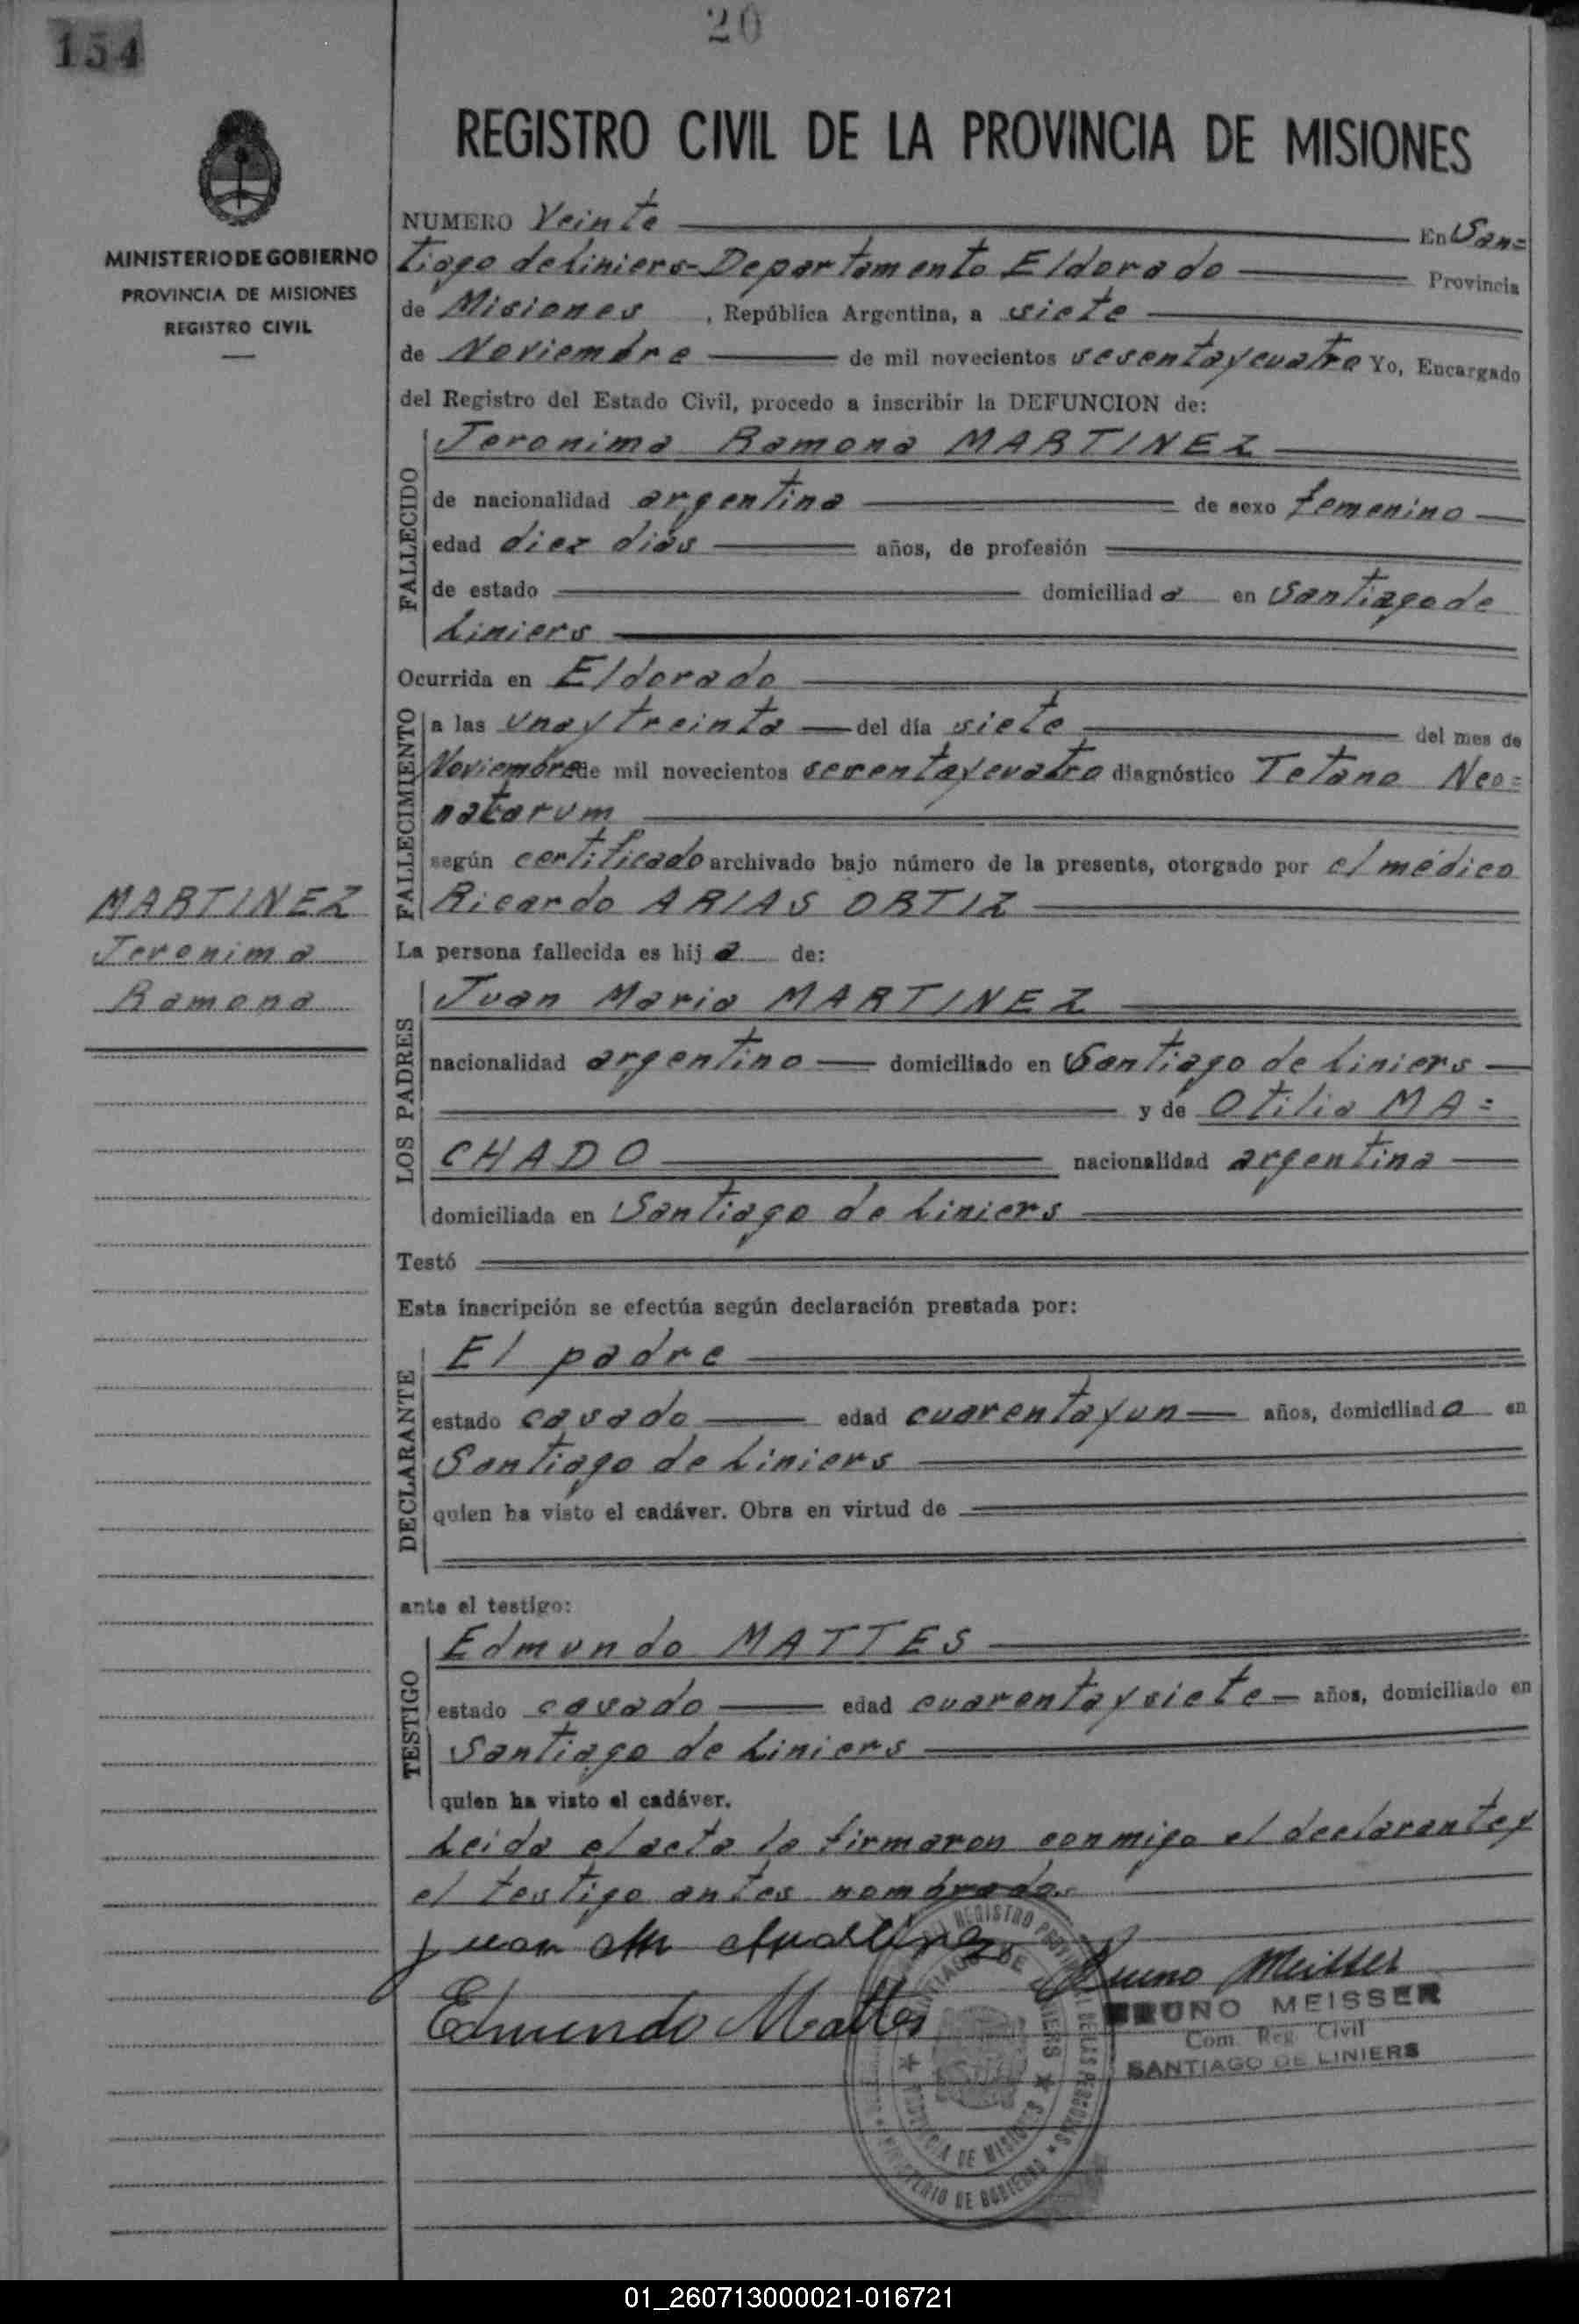 154
20
REGISTRO CIVIL DE LA PROVINCIA DE MISIONES
MINISTERIO DE GOBIERNO
PROVINCIA DE MISIONES
REGISTRO CIVIL
NUMERO Veinte En San=
tiago de Liniers-Departamento Eldorado Provincia
de Misiones, República Argentina, a siete
de Noviembre de mil novecientos sesentaycuatro Yo, Encargado
del Registro del Estado Civil, procedo a inscribir la DEFUNCION de:
FALLECIDO
Jeronima Ramona MARTINEZ
de nacionalidad argentina de sexo femenino
edad diez dias años, de profesión
de estado domiciliad a en Santiago de
Liniers
Ocurrida en Eldorado
FALLECIMIENTO
a las unaytreinta del día siete del mes de
Noviembre de mil novecientos sesentaycuatro diagnóstico Tetano Neo=
natarum
según certificado archivado bajo número de la presente, otorgado por el médico
Ricardo ARIAS ORTIZ
MARTINEZ
Jeronima
Ramona
La persona fallecida es hij a de:
LOS PADRES
Juan Maria MARTINEZ
nacionalidad argentino domiciliado en Santiago de Liniers
y de Otilia MA=
CHADO nacionalidad argentina
domiciliada en Santiago de Liniers
Testó
Esta inscripción se efectúa según declaración prestada por:
DECLARANTE
El padre
estado casado edad cuarentayun años, domiciliad o en
Santiago de Liniers
quien ha visto el cadáver. Obra en virtud de
ante el testigo:
TESTIGO
Edmundo MATTES
estado casado edad cuarentaysiete años, domiciliado en
Santiago de Liniers
quien ha visto el cadáver.
Leida el acta la firmaron conmigo el declarantey
el testigo antes nombrado.
Juan M Martinez
Bruno Meisser
Edmundo Mattes
BRUNO MEISSER
Com. Reg. Civil
SANTIAGO DE LINIERS
REGISTRO PROVINCIAL DE LAS PERSONAS
MINISTERIO DE GOBIERNO
SANTIAGO DE LINIERS
PROVINCIA DE MISIONES
01_260713000021-016721